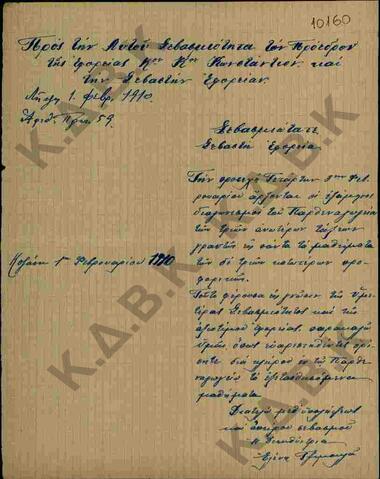 10160
Πρὸς τὴν Αὐτοῦ Σεβασμιότητα τὸν Πρόεδρον
τῆς Ἐφορείας Κον Κον Κωνστάντιον καὶ
τὴν Σεβαστὴν Ἐφορείαν.
1. Φεβρ. 1910.
Ἀριθ. Πρωτ. 59.
Σεβασμιώτατε
Σεβαστὴ Ἐφορεία,
Τὴν προσεχῆ Τετάρτην 3ην Φεβ
ρουαρίου ἄρχονται οἱ ἑξάμηνοι
διαγωνισμοὶ τοῦ Παρθεναγωγείου
τῶν τριῶν ἀνωτέρων τάξεων
γραπτῶς εἰς πάντα τὰ μαθήματα
τῶν δὲ τριῶν κατωτέρων προ
φορικῶς.
Κοζάνη 1η Φεβρουαρίου 1910
Τοῦτο φέρουσα εἰς γνῶσιν τῆς Ὑμε
τέρας Σεβασμιότητος καὶ τῆς
ἀξιοτίμου Ἐφορείας, παρακαλῶ
Ὑμᾶς, ὅπως εὐαρεστηθῆτε ὁρί
σητε διὰ κλήρου ἐν τῷ Παρθε
ναγωγείῳ τὰ ἐξετασθησόμενα
μαθήματα.
Διατελῶ μεθ' ὑπολήψεως
καὶ ἀπείρου σεβασμοῦ
ἡ Διευθύντρια
Ἑλένη
Κ.Δ.Β.Κ
Κ.Δ.Β.Κ
Κ.Δ.Β.Κ